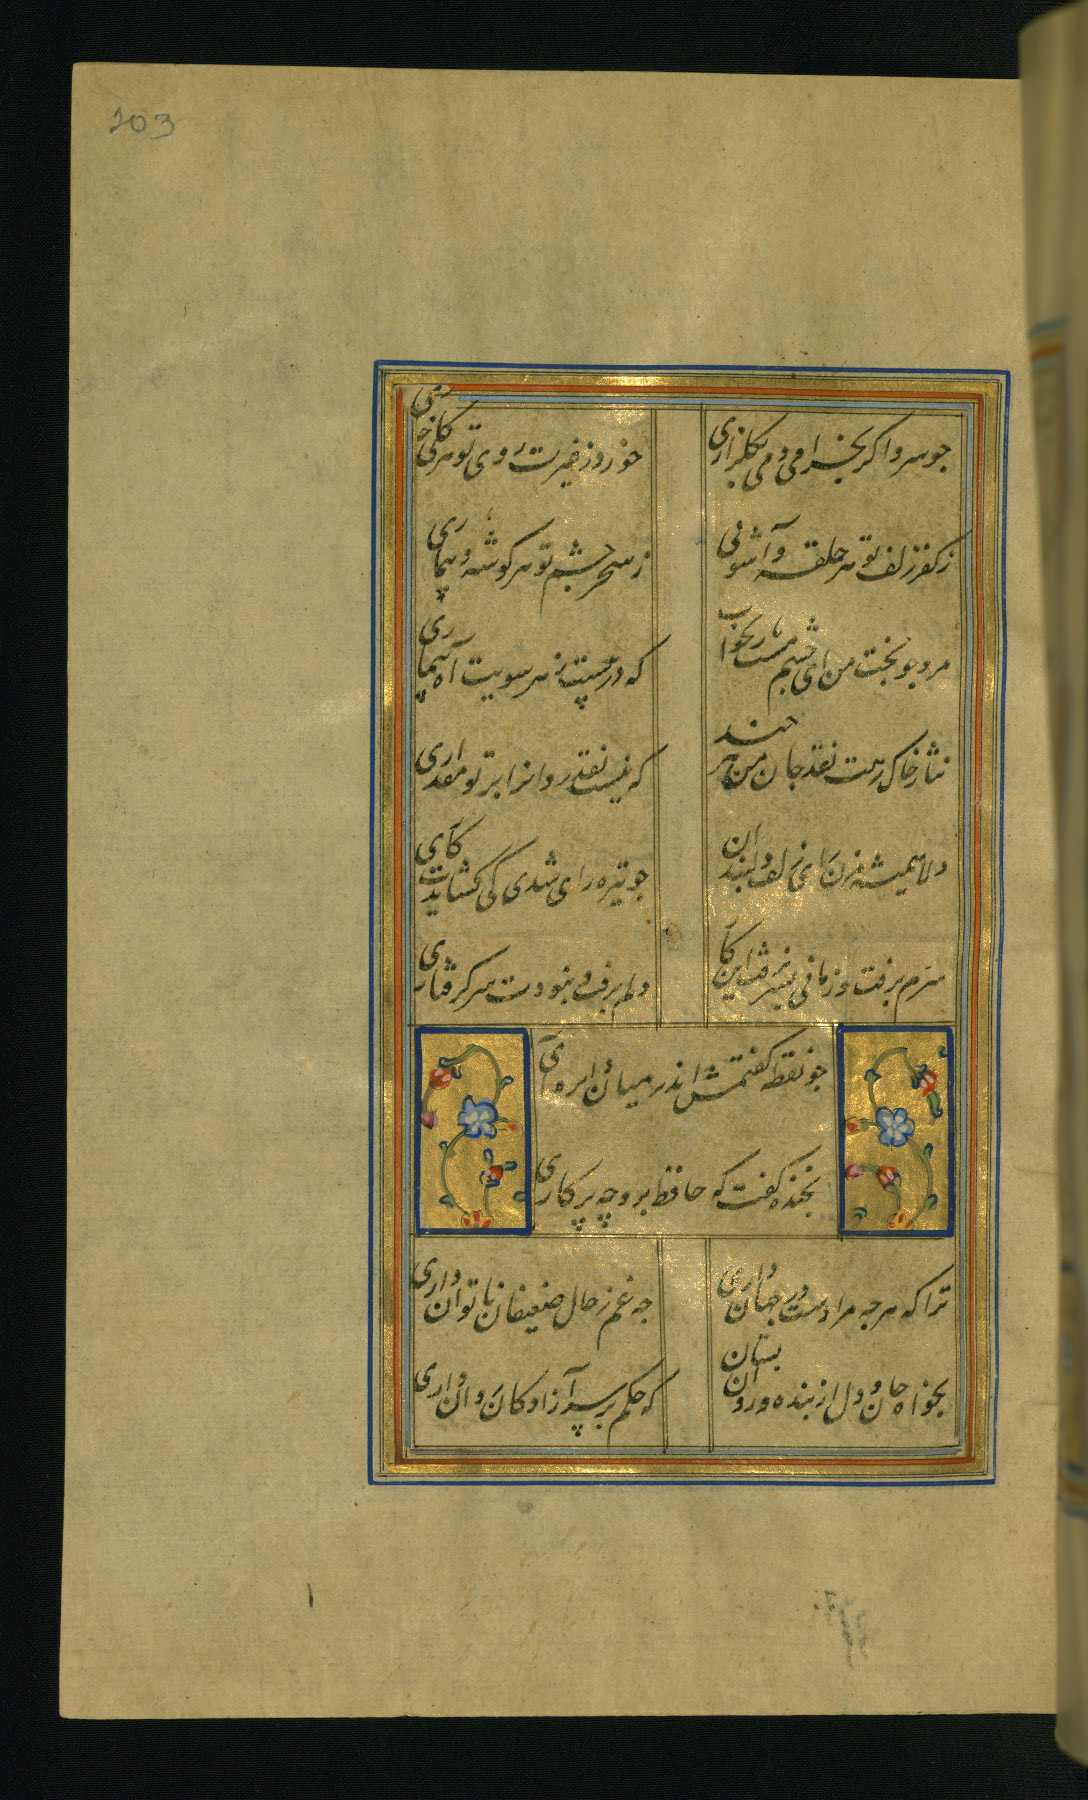 203
جو سرو اکر بخرامی دمی بکلزاری
خورد ز غیرت روی تو هر کلی خاری
ز کفر زلف تو هر حلقه و آشوبی
ز سحر چشم تو هر کوشه و بیماری
مرو جو بخت من ای چشم مست یار بخواب
که در پیست ز هر سویت آه بیماری
نثار خاک رهت نقد جان من هر چند
که نیست نقد روانرا بر تو مقداری
دلا همیشه مزن رای زلف دلبندان
جو تیره رای شدی کی کشایدت کاری
سرم برفت و زمانی بسر نرفت این کار
دلم برفت و نبودت سر کرفتاری
جو نقطه کفتمش اندر میان دایره آی
بخنده کفت که حافظ برو چه پرکاری
ترا که هر جه مرادست در جهان داری
جه غم ز حال ضعیفان ناتوان داری
بخواه جان و دل از بنده و روان بستان
که حکم بر سر آزادکان روان داری